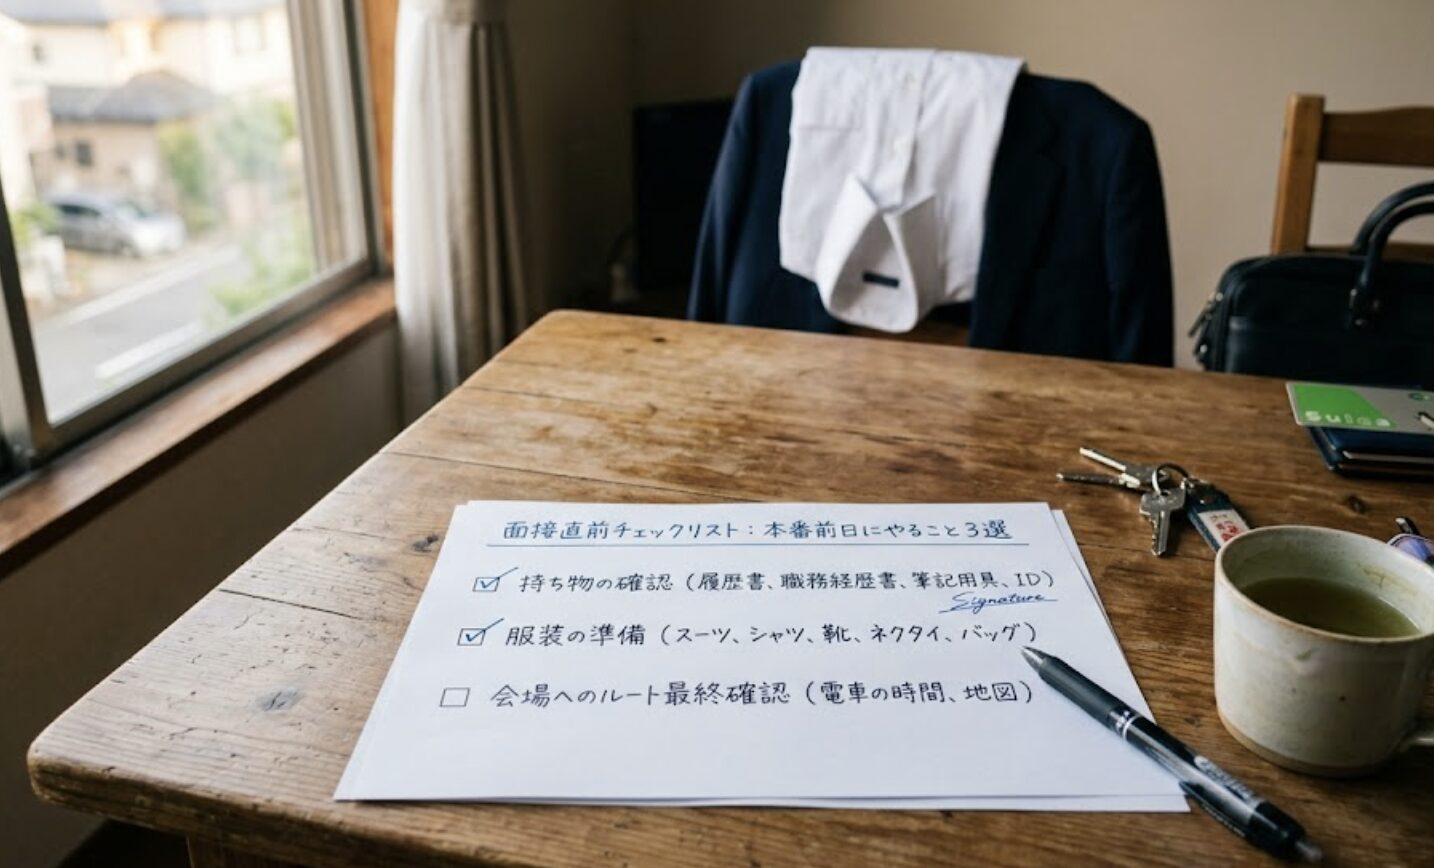 面接直前チェックリスト：本番前日にやること3選
持ち物の確認（履歴書、職務経歴書、筆記用具、ID）
Signature
服装の準備（スーツ、シャツ、靴、ネクタイ、バッグ）
会場へのルート最終確認（電車の時間、地図）
Suica